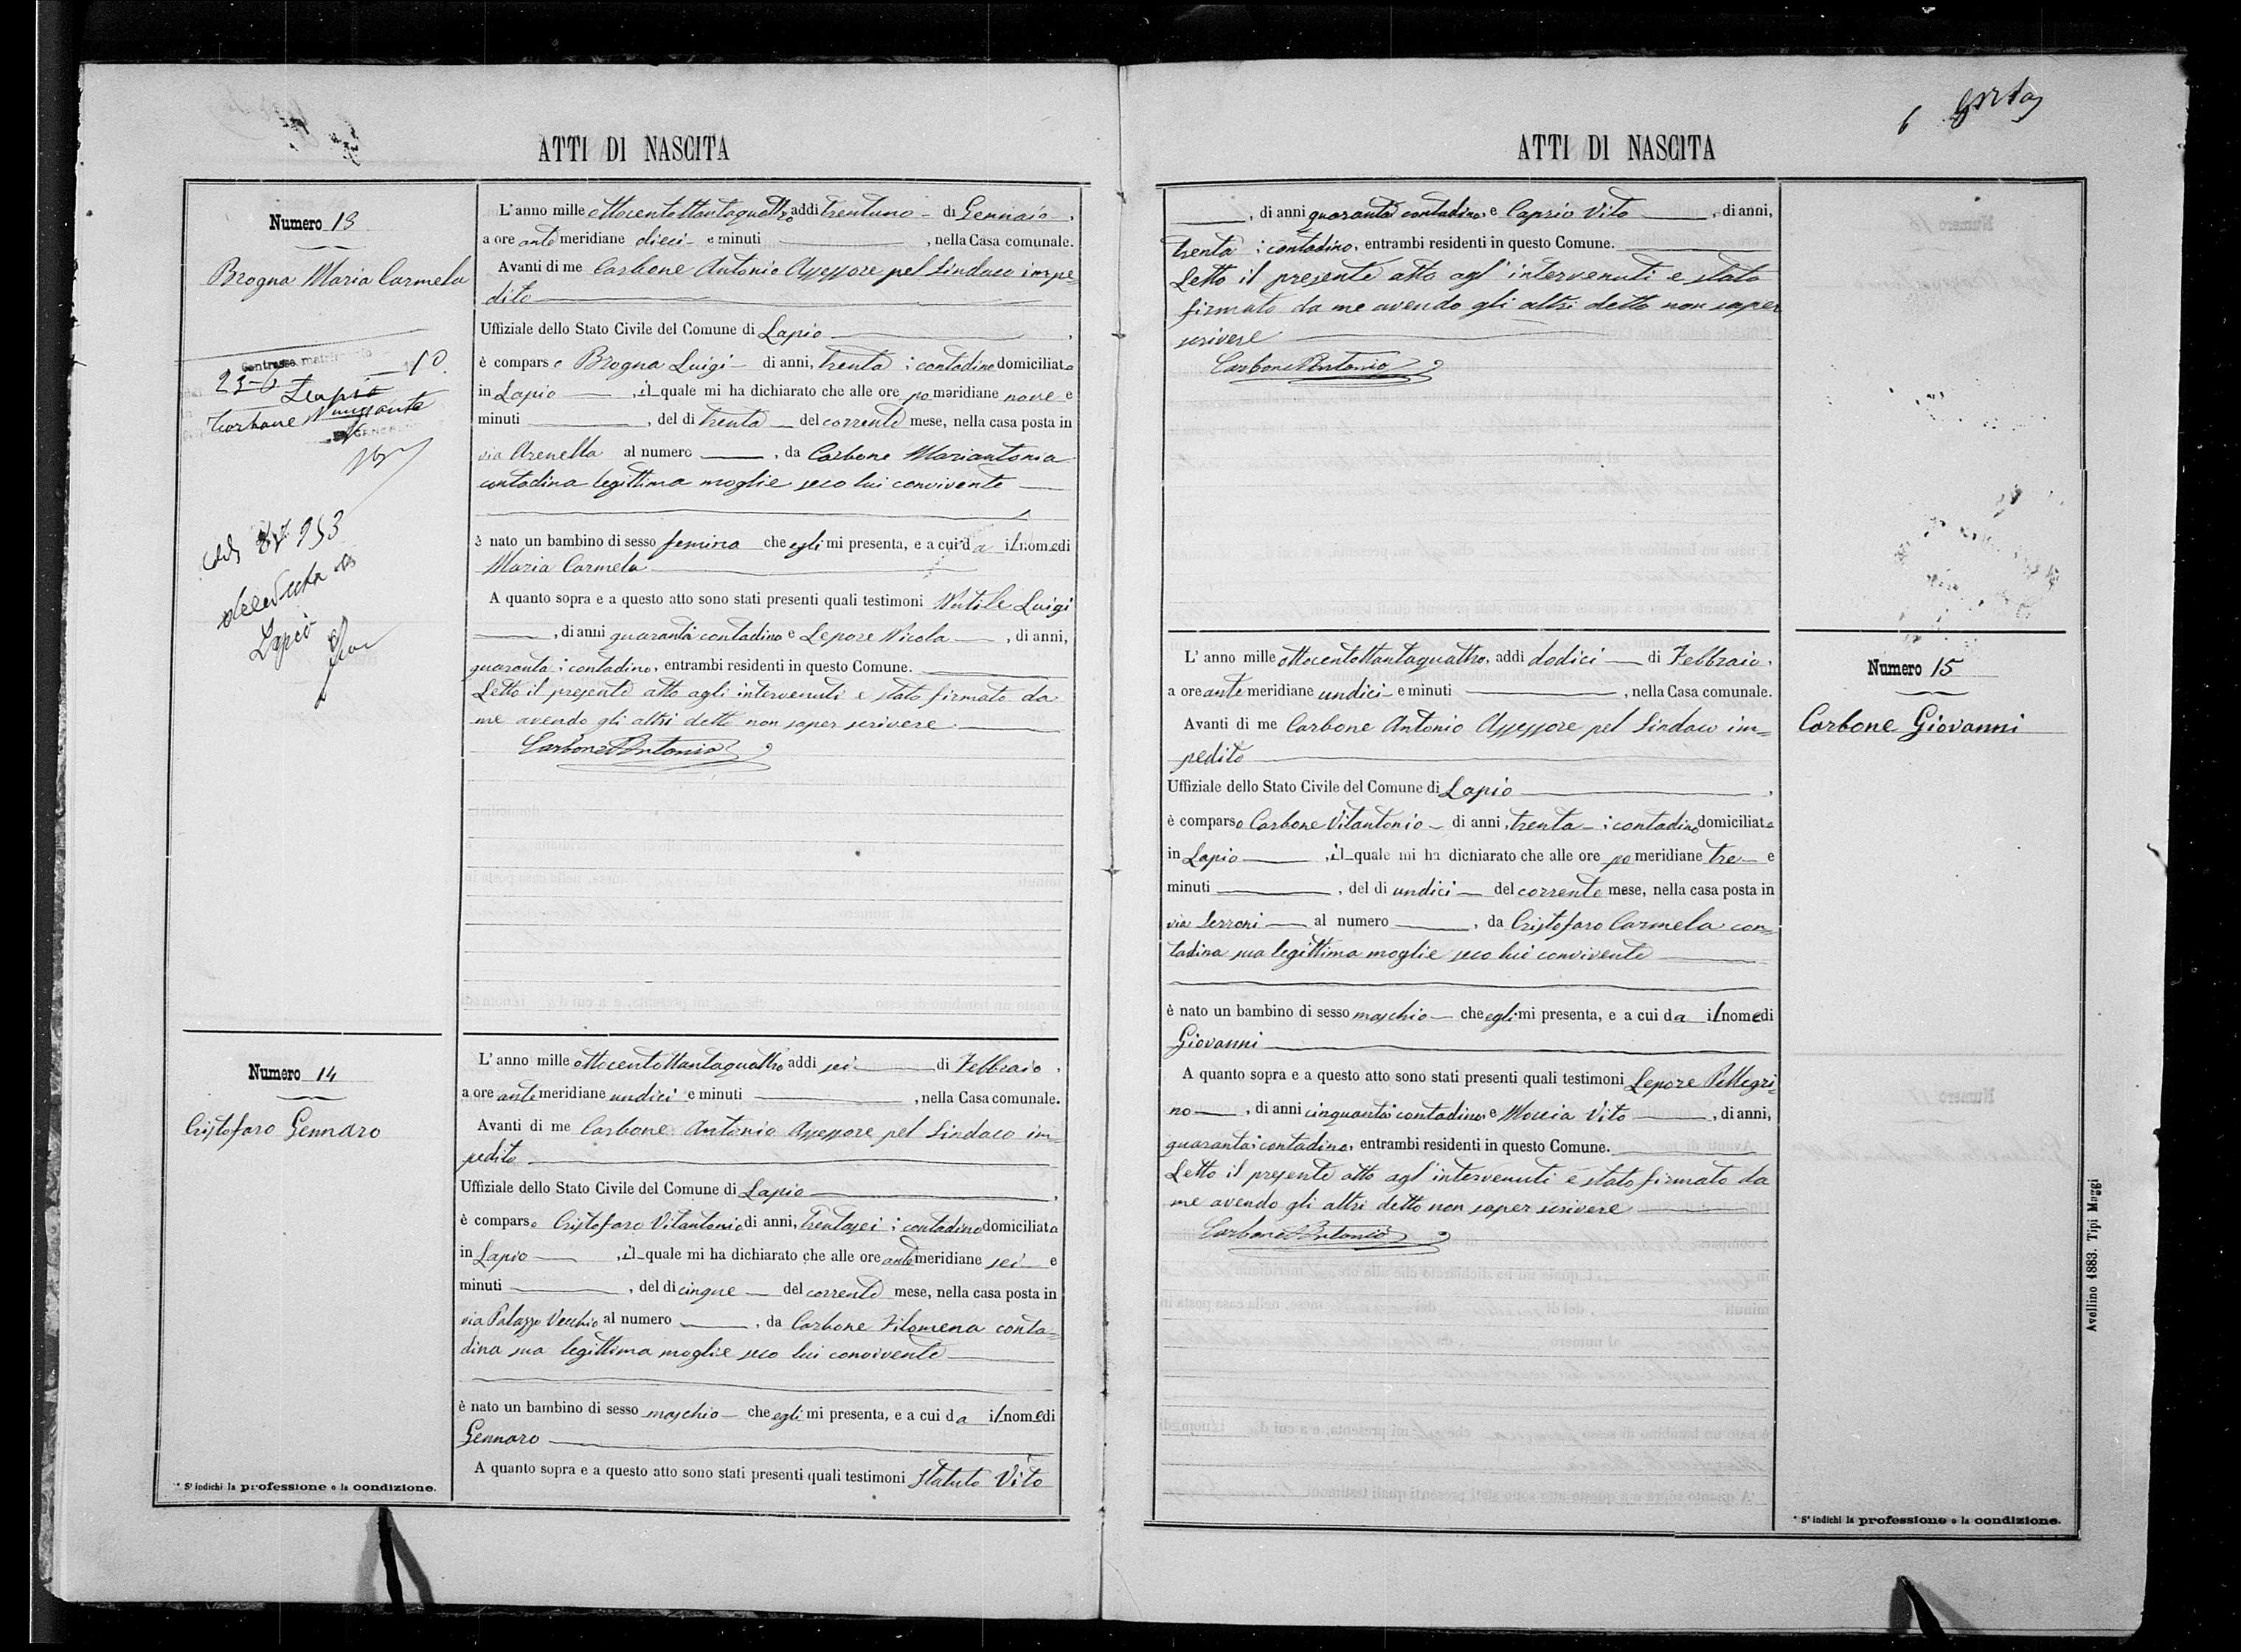 ATTI DI NASCITA
Numero 13
Brogna Maria Carmela
Contrasse matrimonio
Lapio
Carbone
953
deceduta
Lapio
L'anno mille ottocentottantaquattro addì trentuno di Gennaio,
a ore antemeridiane dieci e minuti , nella Casa comunale.
Avanti di me Carbone Antonio Assessore pel Sindaco impe=
dito
Uffiziale dello Stato Civile del Comune di Lapio ,
è comparso Brogna Luigi di anni, trenta ; contadino domiciliato
in Lapio , il quale mi ha dichiarato che alle ore pomeridiane nove e
minuti , del dì trenta del corrente mese, nella casa posta in
via Arenella al numero , da Carbone Mariantonia
contadina legittima moglie seco lui convivente
è nato un bambino di sesso femina che egli mi presenta, e a cui da il nome di
Maria Carmela
A quanto sopra e a questo atto sono stati presenti quali testimoni Nutile Luigi
, di anni quaranta contadino e Lepore Nicola , di anni,
quaranta ; contadino, entrambi residenti in questo Comune.
Letto il presente atto agli intervenuti è stato firmato da
me avendo gli altri detto non saper scrivere
Carbone Antonio
Numero 14
Cristofaro Gennaro
L'anno mille ottocentottantaquattro addì sei di Febbraio,
a ore antemeridiane undici e minuti , nella Casa comunale.
Avanti di me Carbone Antonio Assessore pel Sindaco im=
pedito
Uffiziale dello Stato Civile del Comune di Lapio ,
è comparso Cristofaro Vitantonio di anni, trentasei ; contadino domiciliato
in Lapio , il quale mi ha dichiarato che alle ore antemeridiane sei e
minuti , del dì cinque del corrente mese, nella casa posta in
via Palazzo Vecchio al numero , da Carbone Filomena conta=
dina sua legittima moglie seco lui convivente
è nato un bambino di sesso maschio che egli mi presenta, e a cui da il nome di
Gennaro
A quanto sopra e a questo atto sono stati presenti quali testimoni Statuto Vito
* S'indichi la professione o la condizione.
6
ATTI DI NASCITA
, di anni quaranta contadino, e Caprio Vito , di anni,
trenta ; contadino, entrambi residenti in questo Comune.
Letto il presente atto agl'intervenuti è stato
firmato da me avendo gli altri detto non saper
scrivere
Carbone Antonio
Numero 15
Carbone Giovanni
L'anno mille ottocentottantaquattro, addì dodici di Febbraio,
a ore antemeridiane undici e minuti , nella Casa comunale.
Avanti di me Carbone Antonio Assessore pel Sindaco im=
pedito
Uffiziale dello Stato Civile del Comune di Lapio ,
è comparso Carbone Vitantonio di anni, trenta ; contadino domiciliato
in Lapio , il quale mi ha dichiarato che alle ore pomeridiane tre e
minuti , del dì undici del corrente mese, nella casa posta in
via Serroni al numero , da Cristofaro Carmela con=
tadina sua legittima moglie seco lui convivente
è nato un bambino di sesso maschio che egli mi presenta, e a cui da il nome di
Giovanni
A quanto sopra e a questo atto sono stati presenti quali testimoni Lepore Pellegri=
no , di anni cinquanta contadino, e Moccia Vito , di anni,
quaranta ; contadino, entrambi residenti in questo Comune.
Letto il presente atto agl'intervenuti è stato firmato da
me avendo gli altri detto non saper scrivere
Carbone Antonio
* S'indichi la professione o la condizione.
Avellino 1883. Tipi Maggi